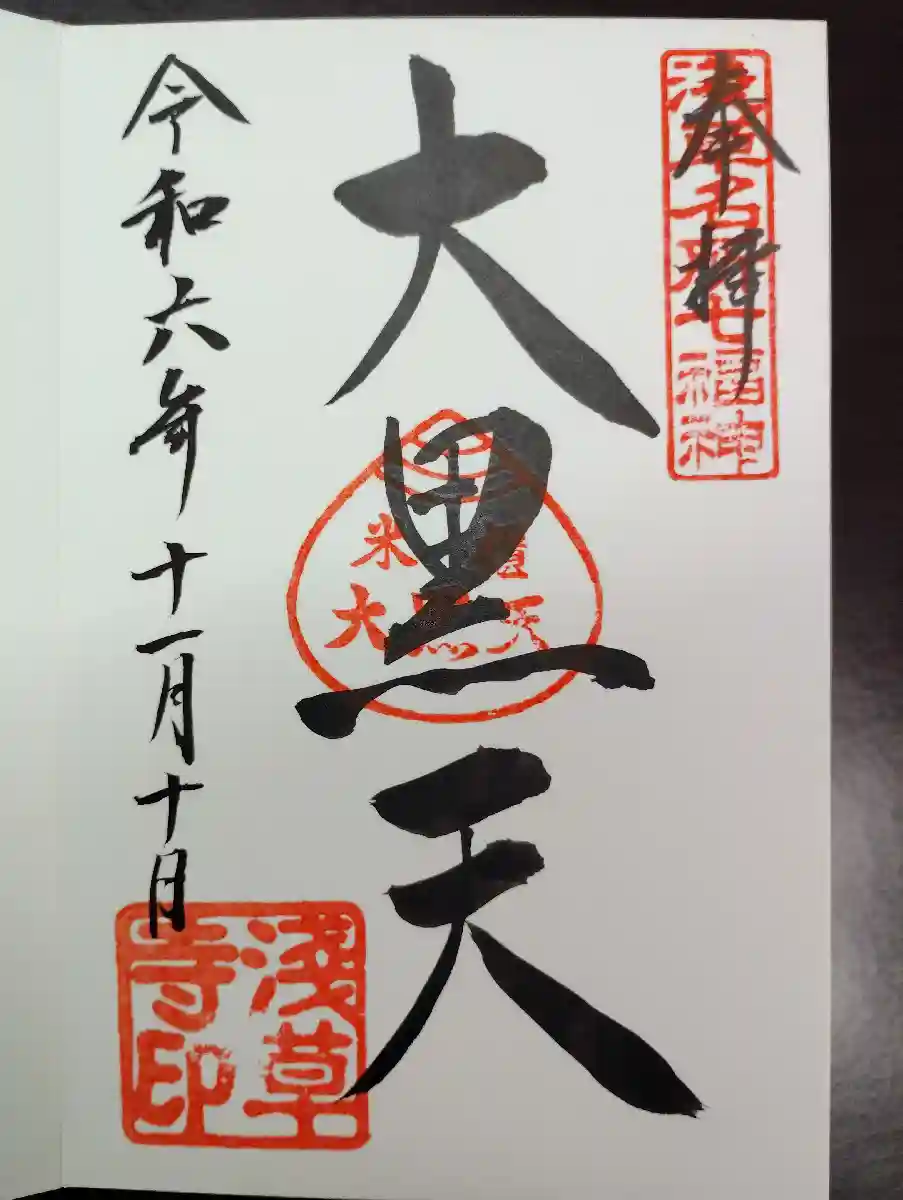 奉拝
浅草名所七福神
大黒天
米櫃
大黒天
令和六年十一月十日
浅草
寺印